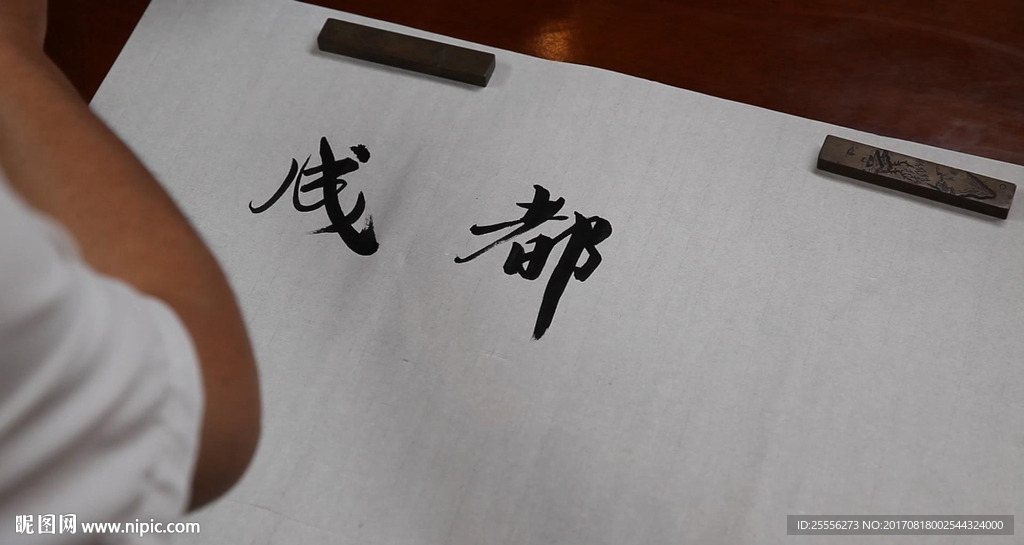 成都
昵图网 www.nipic.com
ID:25556273 NO:20170818002544324000